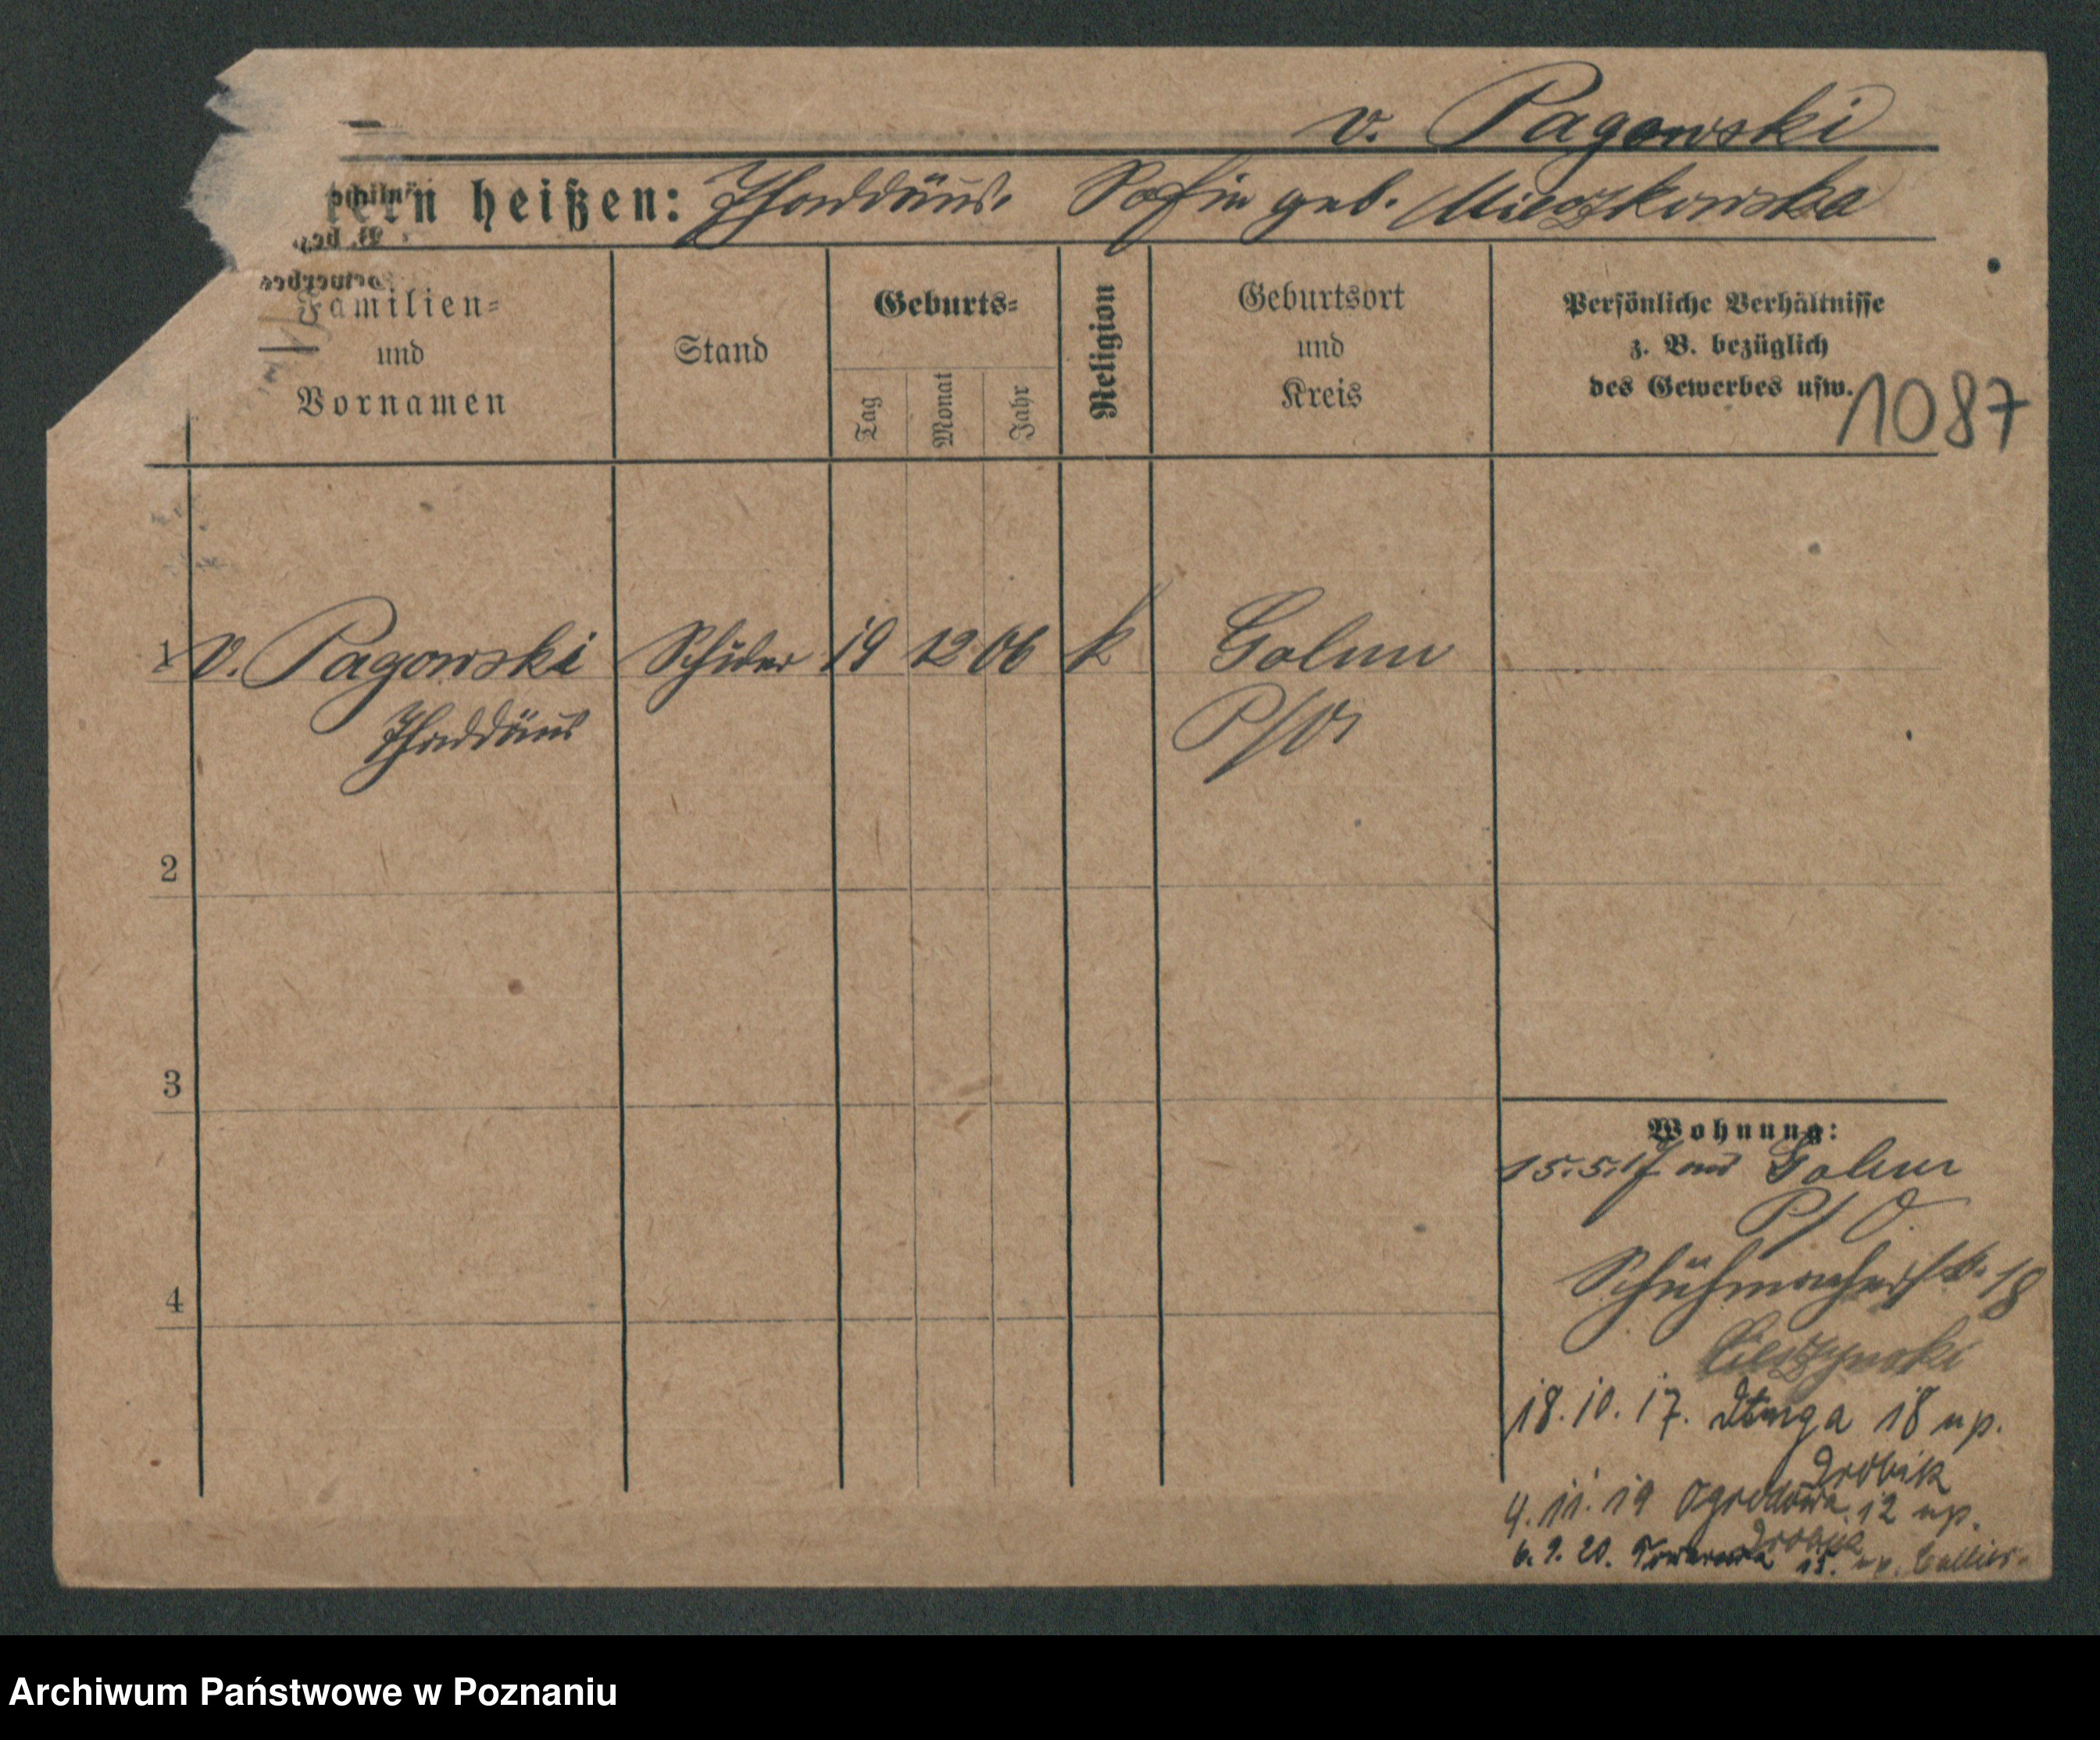 v. Pagowski
tern heißen: Thaddäus. Sofie geb. Mieczkowska
Familien=
und
Vornamen
Stand
Geburts=
Tag
Monat
Jahr
Religion
Geburtsort
und
Kreis
Persönliche Verhältnisse
z. B. bezüglich
des Gewerbes usw.
1087
1 v. Pagowski Schüler 19 12 06 k Golun
Thaddäus P/O
2
3
4
Wohnung:
15.5.17 aus Golun
P/O.
Schuhmacherstr. 18
Cieszynski
18.10.17. 18 u p.
Drobik
4.11.19 Ogrodowa 12 u p.
Drobik
6.9.20. 15. u p.
Archiwum Państwowe w Poznaniu